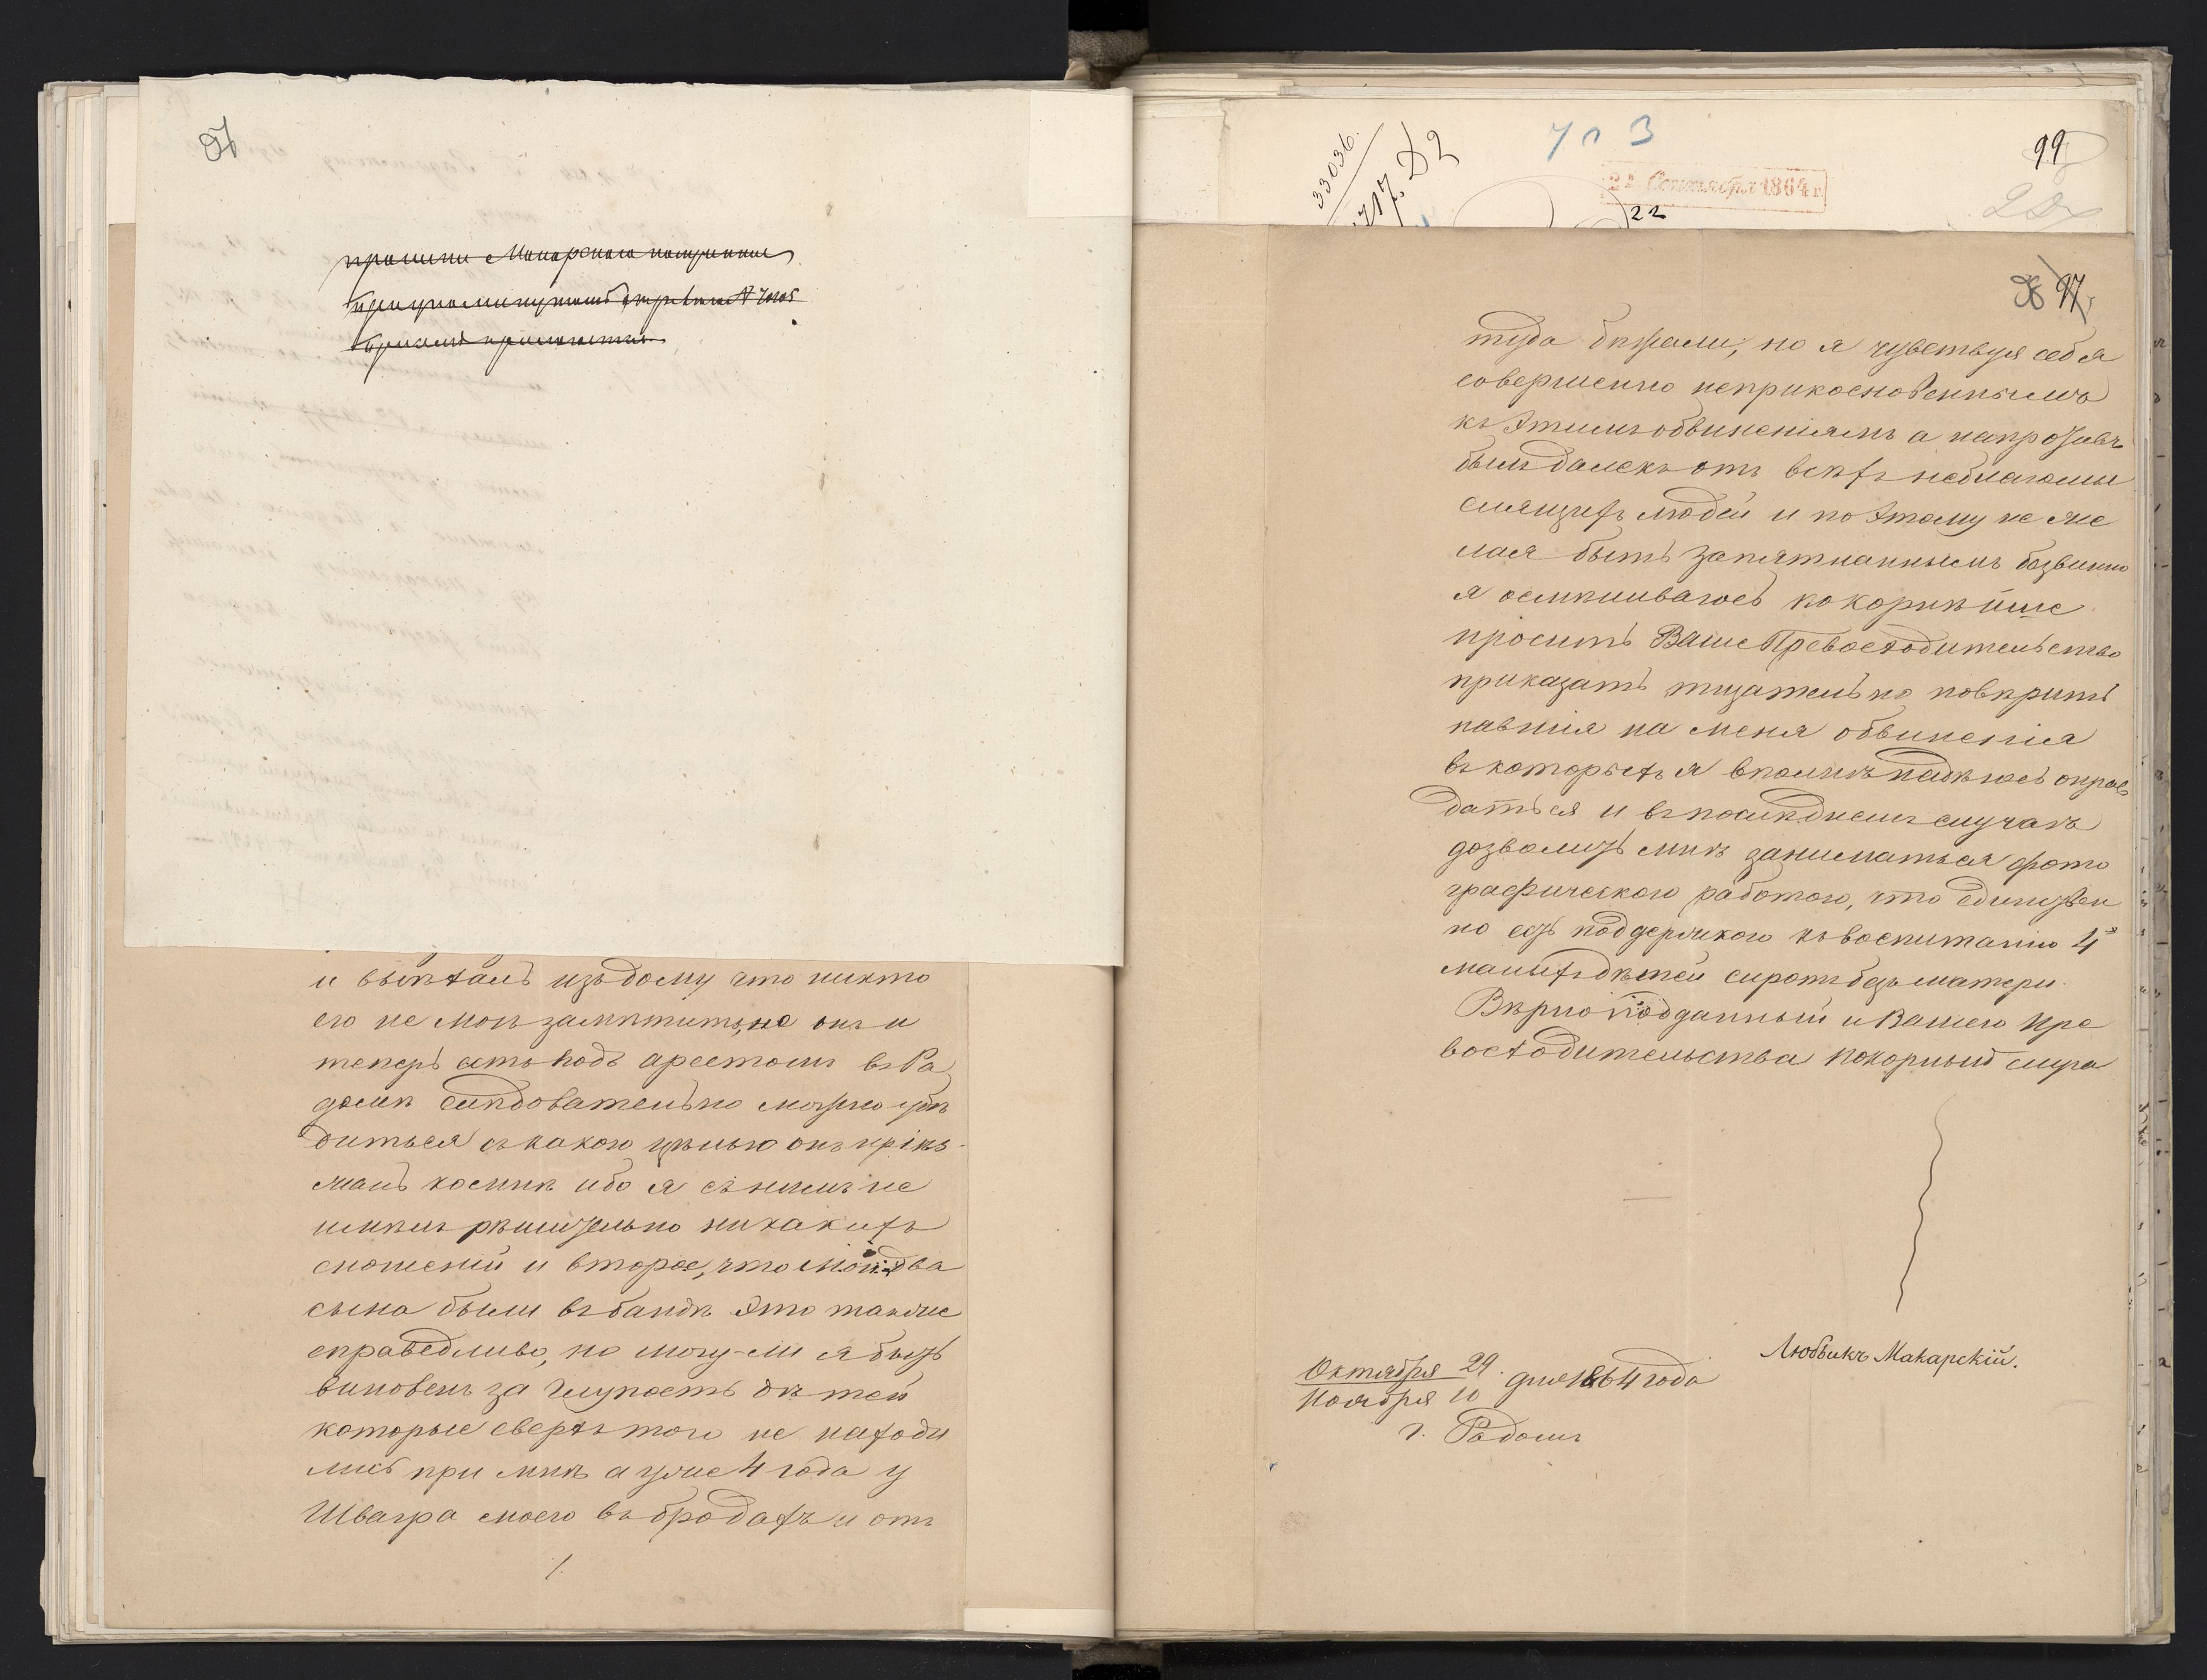 прошени Макарскаго
и выѣхалъ изъ дому что никто
его не могъ замѣтить, но онъ и
теперь есть подъ арестомъ въ Ра
домѣ слѣдовательно можно убѣ
диться съ какою цѣлью онъ пріѣз-
жалъ ко мнѣ ибо я съ нимъ не
имѣлъ рѣшительно никакихъ
сношеній и второе, что мои два
сына были въ бандѣ это также
справедливо, но могу-ли я быть
виновенъ за глупость дѣтей
которые сверхъ того не находи
лись при мнѣ а уже 4 года у
Швагра моего въ бродахъ и отъ
1.
33036.
717. D2
7 п 3
22 Сентября 1864 г.
22
99
97
туда бѣжали, но я чувствуя себя
совершенно неприкосновеннымъ
къ этимъ обвиненіямъ а напротивъ
былъ далекъ отъ всѣхъ неблагомы
слящихъ людей и по этому не же
лая быть запятнаннымъ безвинно
я осмѣливаюсь покорнѣйше
просить Ваше Превосходительство
приказать тщательно повѣрить
павшія на меня обвиненія
въ которыхъ я вполнѣ надѣюсь оправ
даться и въ послѣднемъ случаѣ
дозволить мнѣ заниматься фото
графическою работою, что единствен
но есть поддержкою къ воспитанію 4х
малыхъ дѣтей сиротъ безъ матери.
Вѣрноподданный и Вашего Пре
восходительства покорный слуга
Любвикъ Макарскій.
Октября 29
Ноября 10 дня 1864 года
г. Радомъ